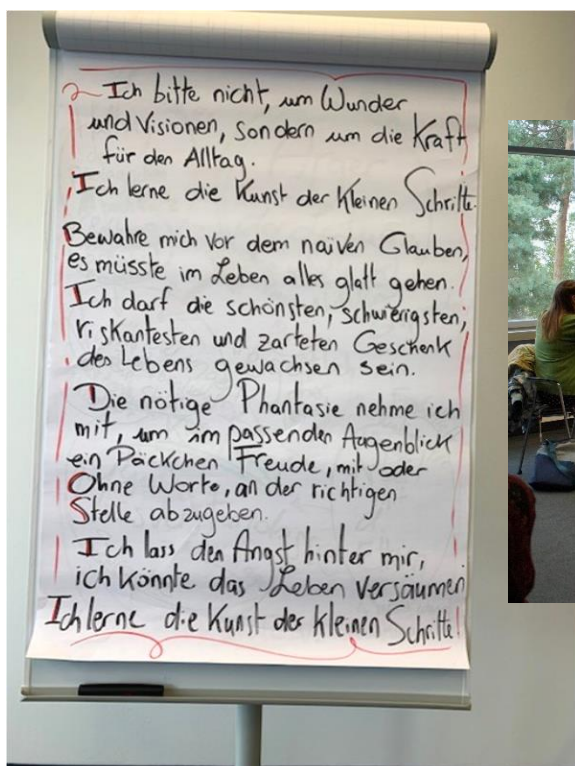 Ich bitte nicht, um Wunder
und Visionen, sondern um die Kraft
für den Alltag.
Ich lerne die Kunst der Kleinen Schritte.
Bewahre mich vor dem naiven Glauben,
es müsste im Leben alles glatt gehen.
Ich darf die schönsten, schwierigsten,
riskantesten und zarteten Geschenk
des Lebens gewachsen sein.
Die nötige Phantasie nehme ich
mit, um im passenden Augenblick
ein Päckchen Freude, mit oder
Ohne Worte, an der richtigen
Stelle abzugeben.
Ich lass den Angst hinter mir,
ich könnte das Leben versäumen
Ich lerne die Kunst der kleinen Schritte!